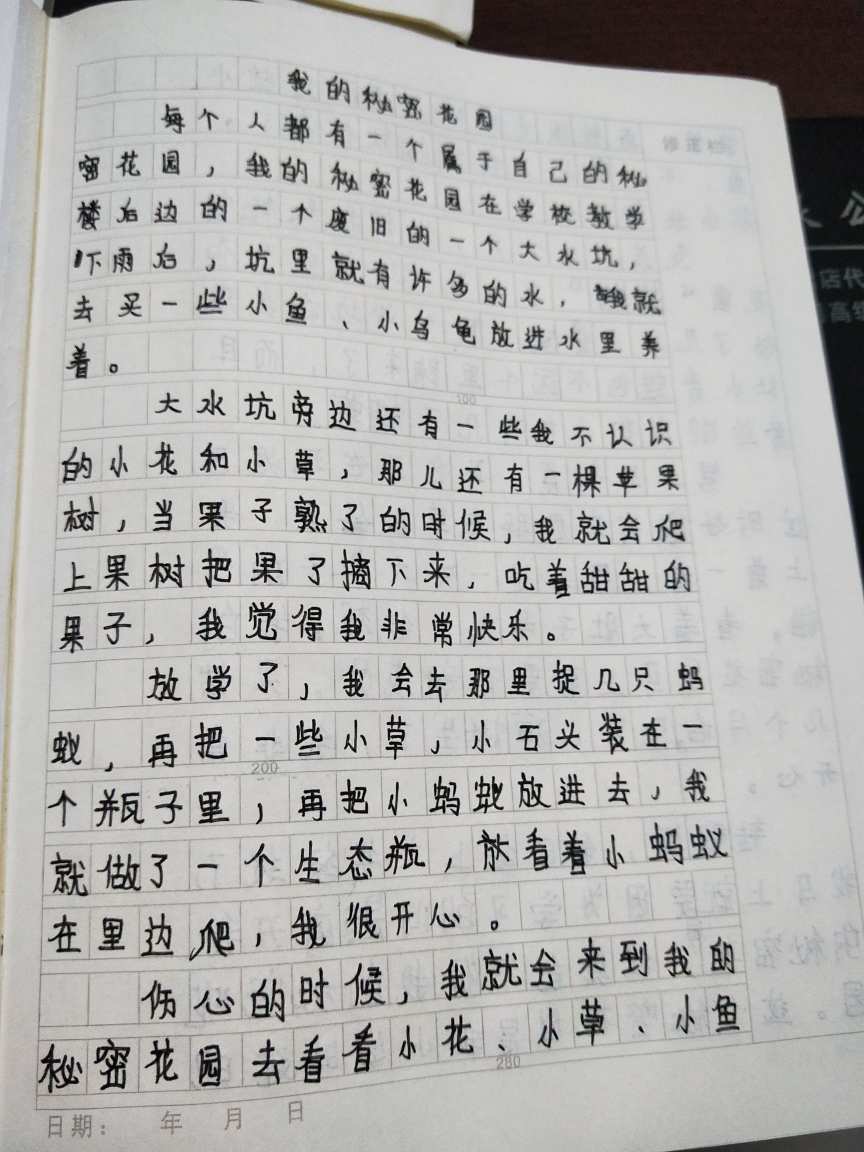 我的秘密花园
每个人都有一个属于自己的秘
密花园，我的秘密花园在学校教学
楼后边的一个废旧的一个大水坑，
下雨后，坑里就有许多的水，我就
去买一些小鱼、小乌龟放进水里养
着。
大水坑旁边还有一些我不认识
的小花和小草，那儿还有一棵苹果
树，当果子熟了的时候，我就会爬
上果树把果了摘下来，吃着甜甜的
果子，我觉得我非常快乐。
放学了，我会去那里捉几只蚂
蚁，再把一些小草，小石头装在一
个瓶子里，再把小蚂蚁放进去，我
就做了一个生态瓶，放看着小蚂蚁
在里边爬，我很开心。
伤心的时候，我就会来到我的
秘密花园去看看小花、小草、小鱼
100
200
280
日期： 年 月 日
修正栏
店代
高级